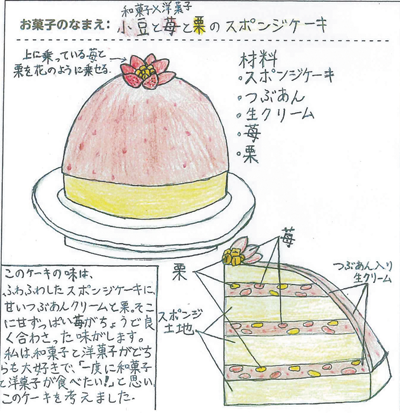 和菓子×洋菓子
お菓子のなまえ: 小豆と苺と栗のスポンジケーキ
上に乗っている苺と
栗を花のように乗せる.
材料
・スポンジケーキ
・つぶあん
・生クリーム
・苺
・栗
苺
つぶあん入り
生クリーム
栗
スポンジ
土地
このケーキの味は、
ふわふわしたスポンジケーキに、
甘いつぶあんクリームと栗、そこ
に甘ずっぱい苺がちょうど良
く合わさった味がします。
私は和菓子と洋菓子がどち
らも大好きで、「一度に和菓子
と洋菓子が食べたい!」と思い、
このケーキを考えました.